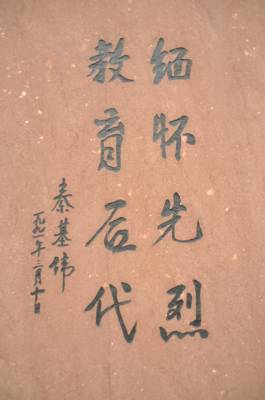 缅怀先烈
教育后代
秦基伟
一九九一年三月十日